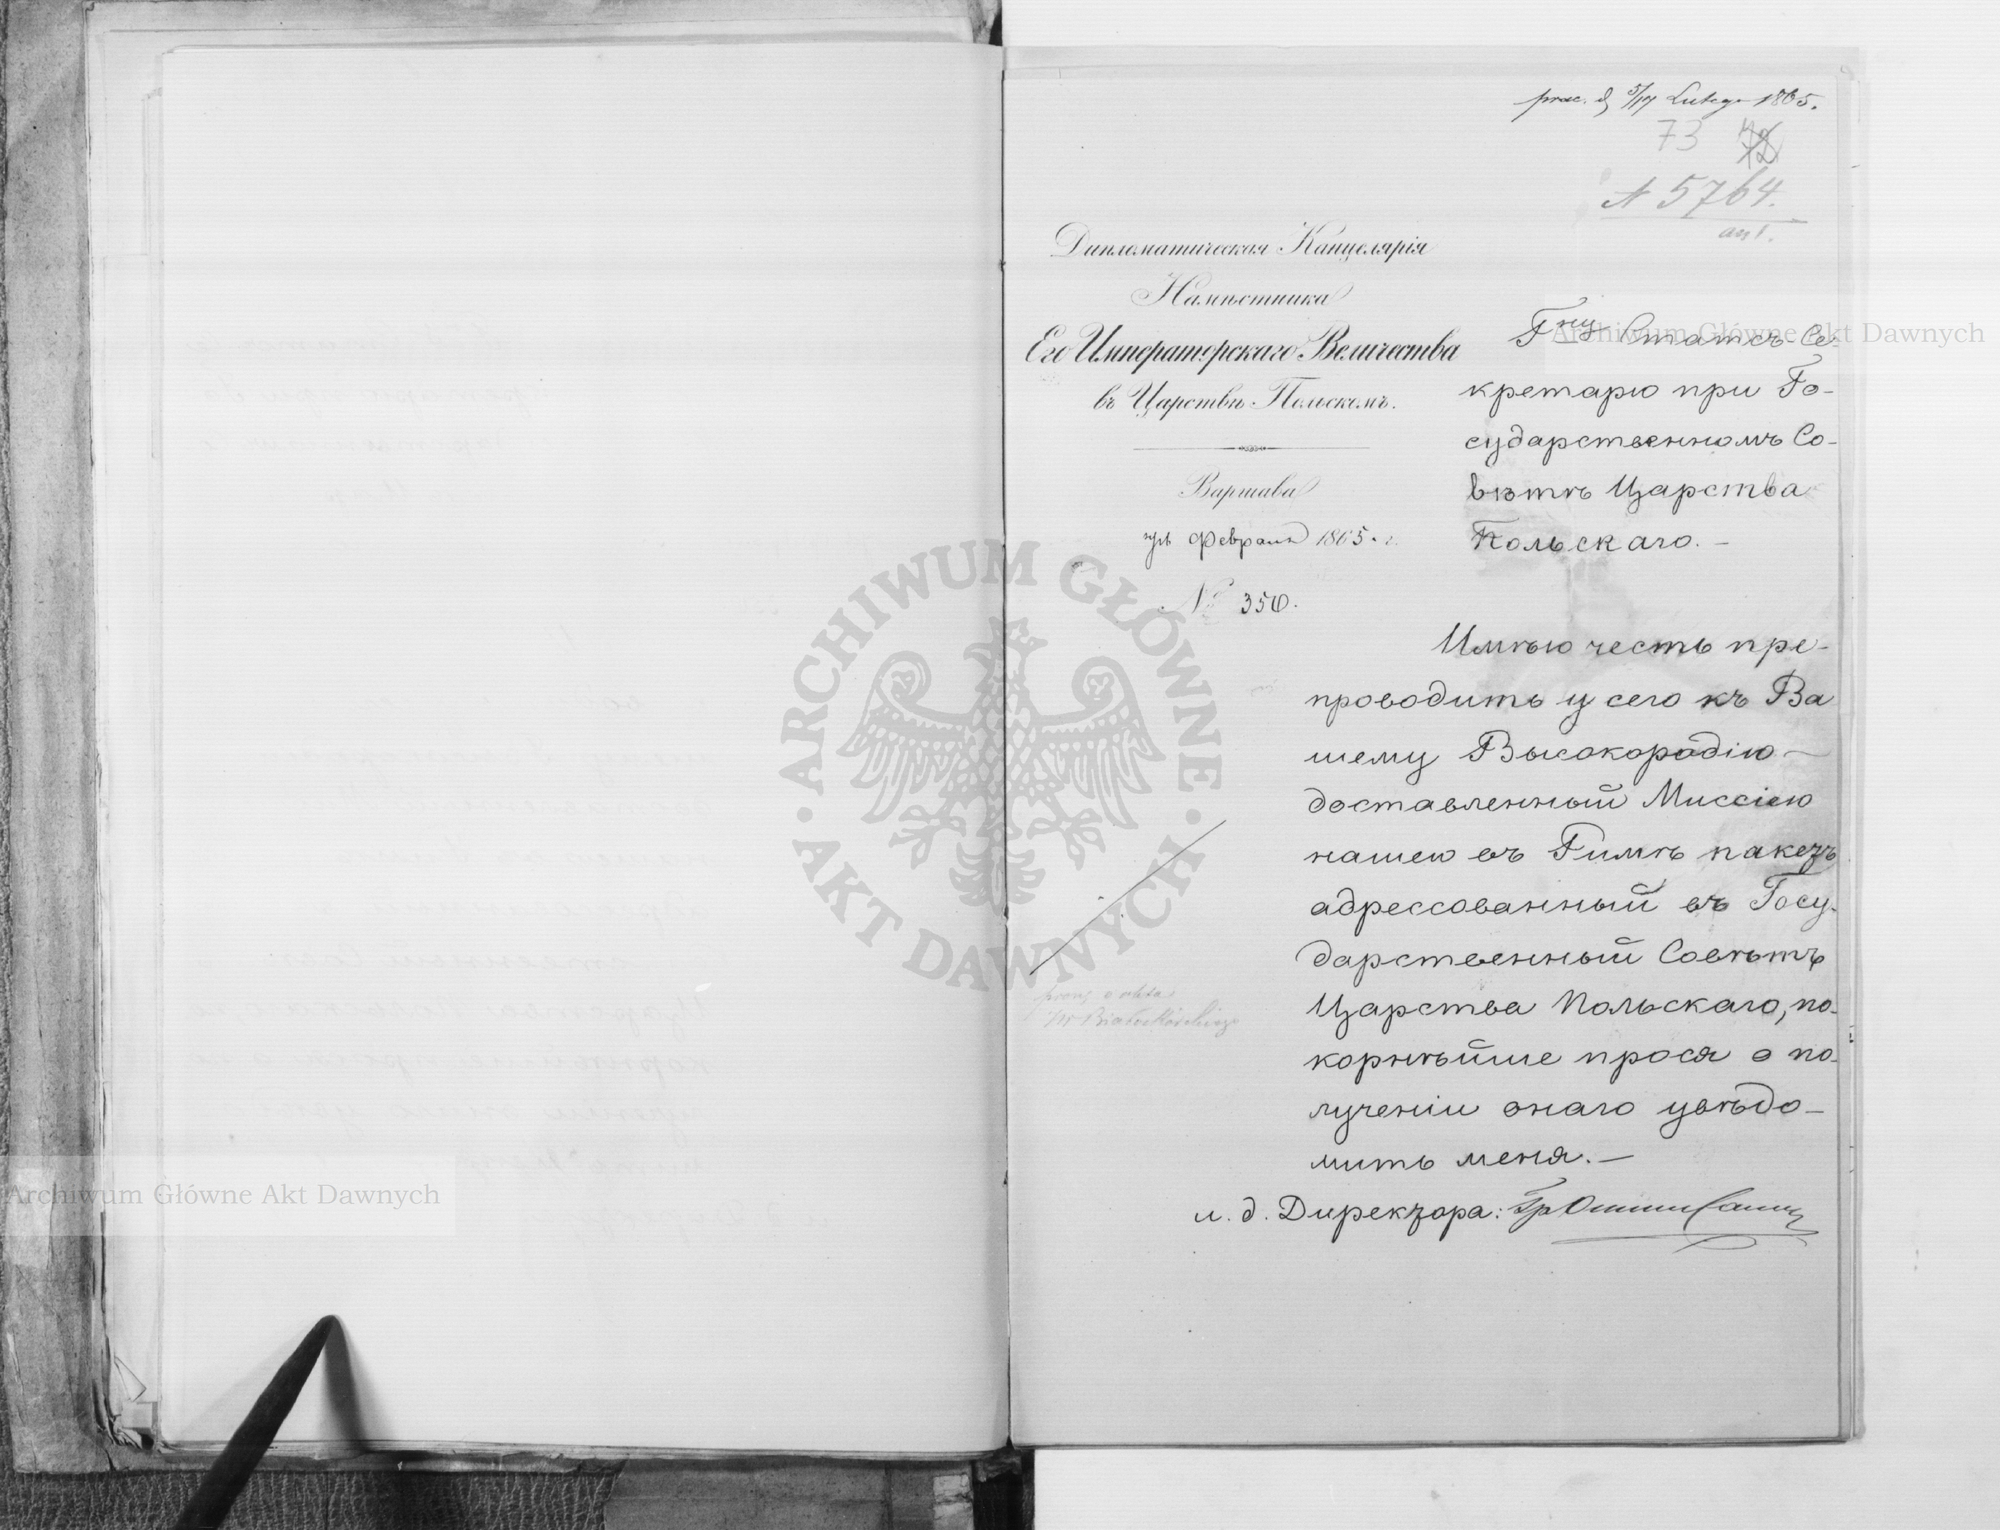 prae. d 5/17 Lutego 1865.
73 72
N 5764.
ant.
Дипломатическая Канцелярія
Намѣстника
Его Императорскаго Величества
въ Царствѣ Польскомъ.
Варшава
Февраля 1865. г.
№ 350.
Гну Статсъ Се-
кретарю при Го-
сударственномъ Со-
вѣтѣ Царства
Польскаго. -
Имѣю честь пре-
проводить у сего къ Ва
шему Высокородію -
доставленный Миссіею
нашею въ Римѣ пакетъ
адрессованный въ Госу-
дарственный Совѣтъ
Царства Польскаго, по-
корнѣйше прося о по-
лученіи онаго увѣдо-
мить меня. -
и. д. Директора: Гр
ARCHIWUM GŁÓWNE AKT DAWNYCH
Archiwum Główne Akt Dawnych
Archiwum Główne Akt Dawnych